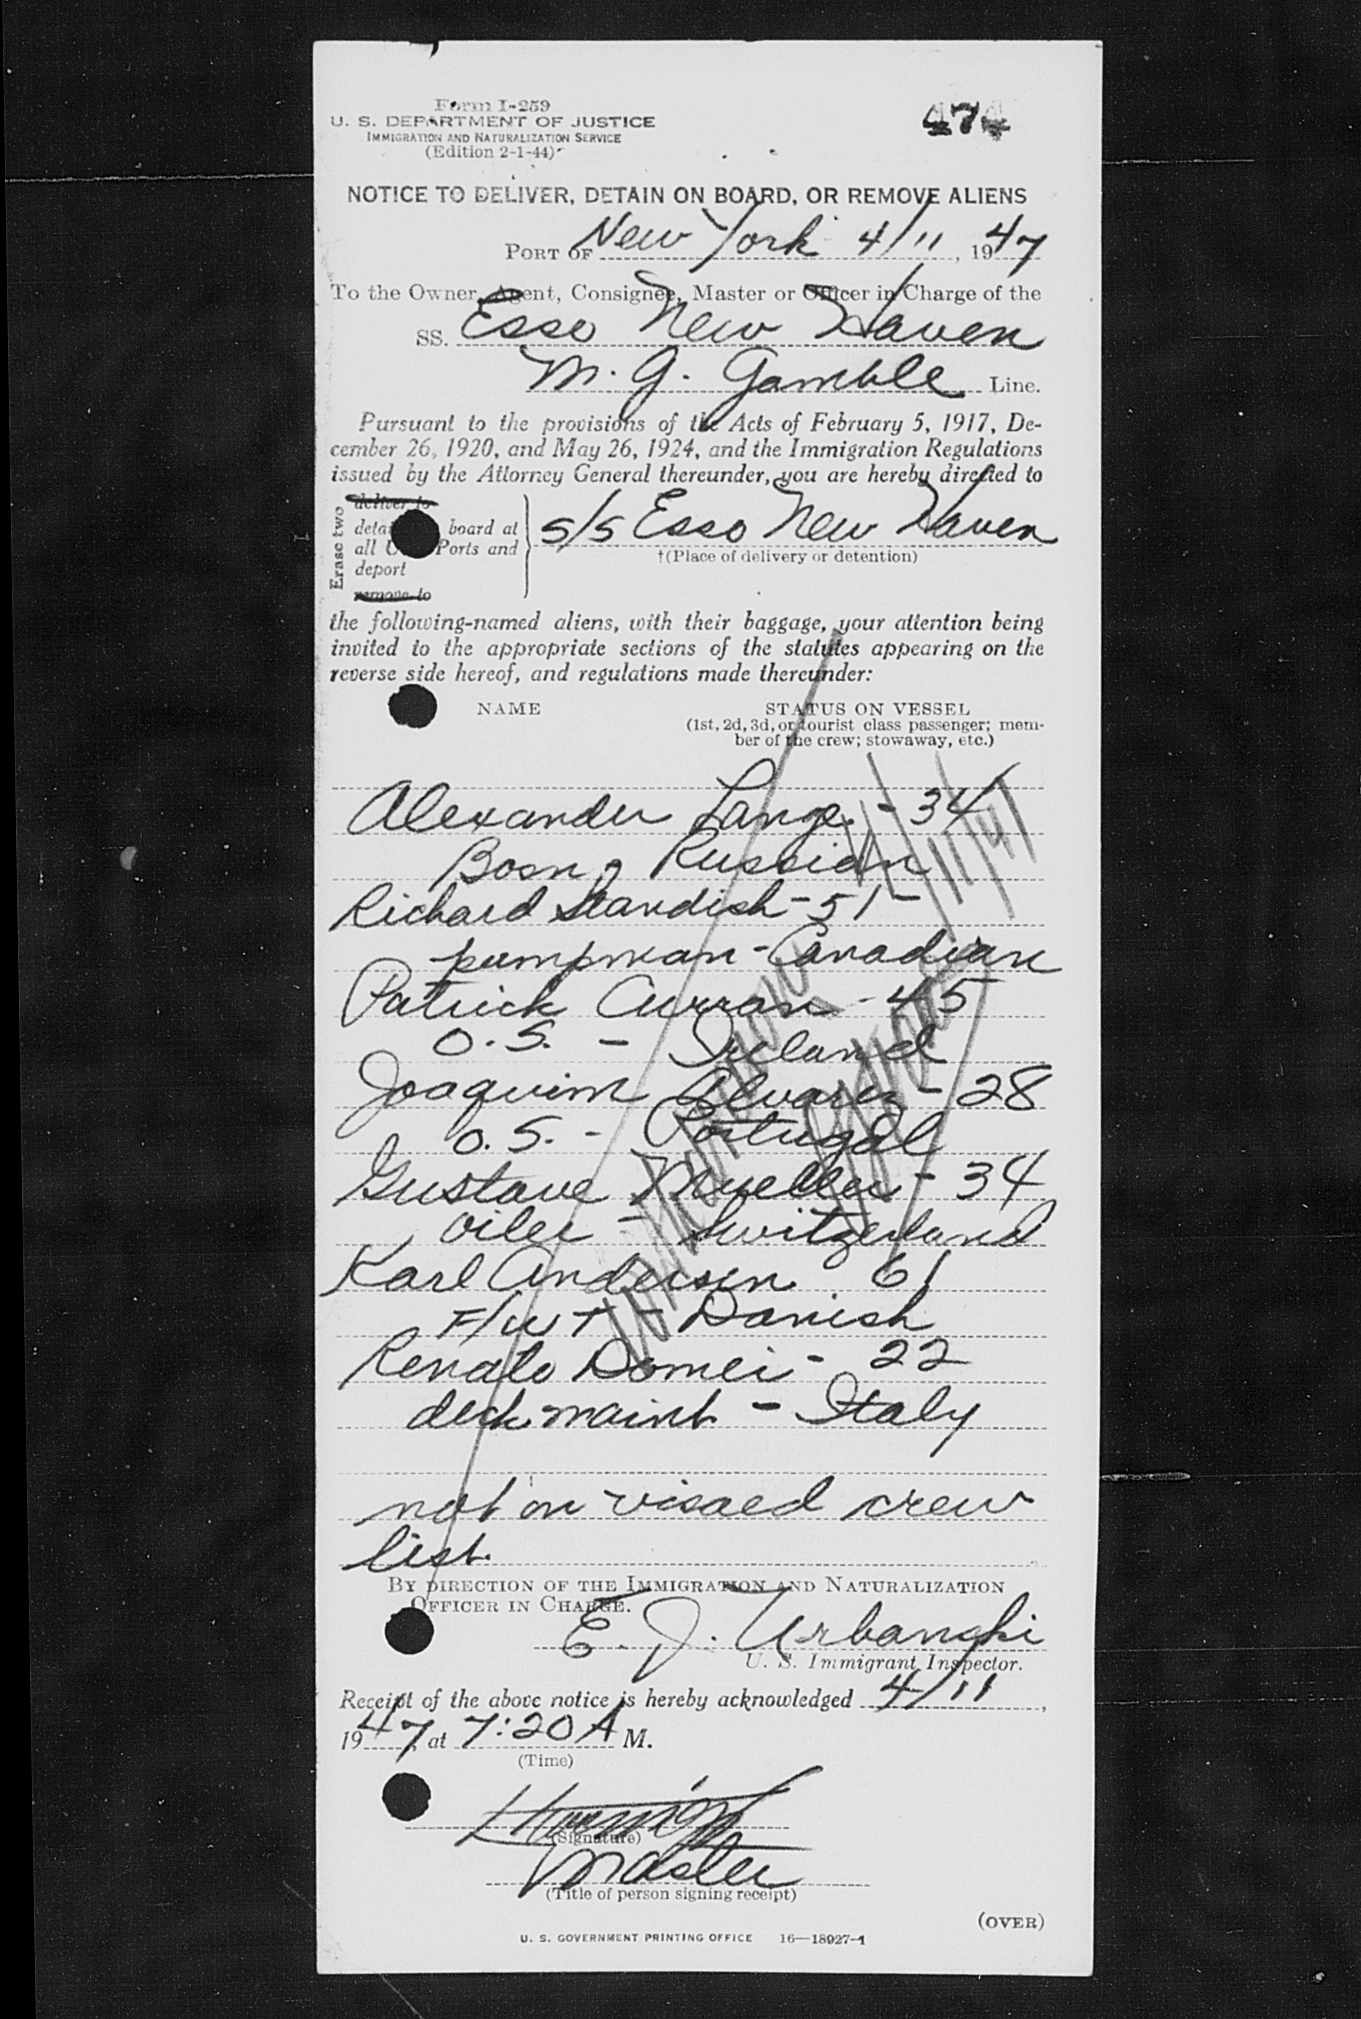 Form I-259
474
U. S. DEPARTMENT OF JUSTICE
IMMIGRATION AND NATURALIZATION SERVICE
(Edition 2-1-44)
NOTICE TO DELIVER, DETAIN ON BOARD, OR REMOVE ALIENS
PORT OF New York 4/11, 1947
To the Owner, Agent, Consignee, Master or Officer in Charge of the
SS. Esso New Haven
M. G. Gamble Line.
Pursuant to the provisions of the Acts of February 5, 1917, De-
cember 26, 1920, and May 26, 1924, and the Immigration Regulations
issued by the Attorney General thereunder, you are hereby directed to
Erase two
deliver to
board at
all Ports and
deport
remove to
s/s Esso New Haven
†(Place of delivery or detention)
the following-named aliens, with their baggage, your attention being
invited to the appropriate sections of the statutes appearing on the
reverse side hereof, and regulations made thereunder:
NAME STATUS ON VESSEL
(1st, 2d, 3d, or tourist class passenger; mem-
ber of the crew; stowaway, etc.)
Alexander Lange - 34
Bosn, Russian
Richard Standish - 51 -
pumpman - Canadian
Patrick Curran - 45
O.S. - Ireland
Joaquim Alvarez - 28
O.S. - Portugal
Gustave Mueller - 34
oiler - Switzerland
Karl Andersen 61
F/WT - Danish
Renato Domei - 22
deck maint - Italy
4/11/47
not on visaed crew
list.
BY DIRECTION OF THE IMMIGRATION AND NATURALIZATION
OFFICER IN CHARGE.
E. J. Urbanski
U. S. Immigrant Inspector.
Receipt of the above notice is hereby acknowledged 4/11,
1947, at 7:20 A M.
(Time)
(Signature)
Master
(Title of person signing receipt)
(OVER)
U. S. GOVERNMENT PRINTING OFFICE 16—18927-1